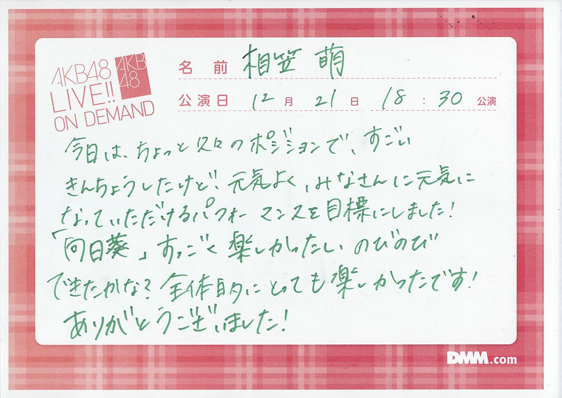 AKB48
LIVE!!
ON DEMAND
AKB
48
名前 相笠 萌
公演日 12月 21日 18:30 公演
今日は、ちょっと久々のポジションで、すごい
きんちょうしたけど、元気よく、みなさんに元気に
なっていただけるパフォーマンスを目標にしました!
「向日葵」すっごく楽しかったし、のびのび
できたかな?全体的にとっても楽しかったです!
ありがとうございました!
DMM.com